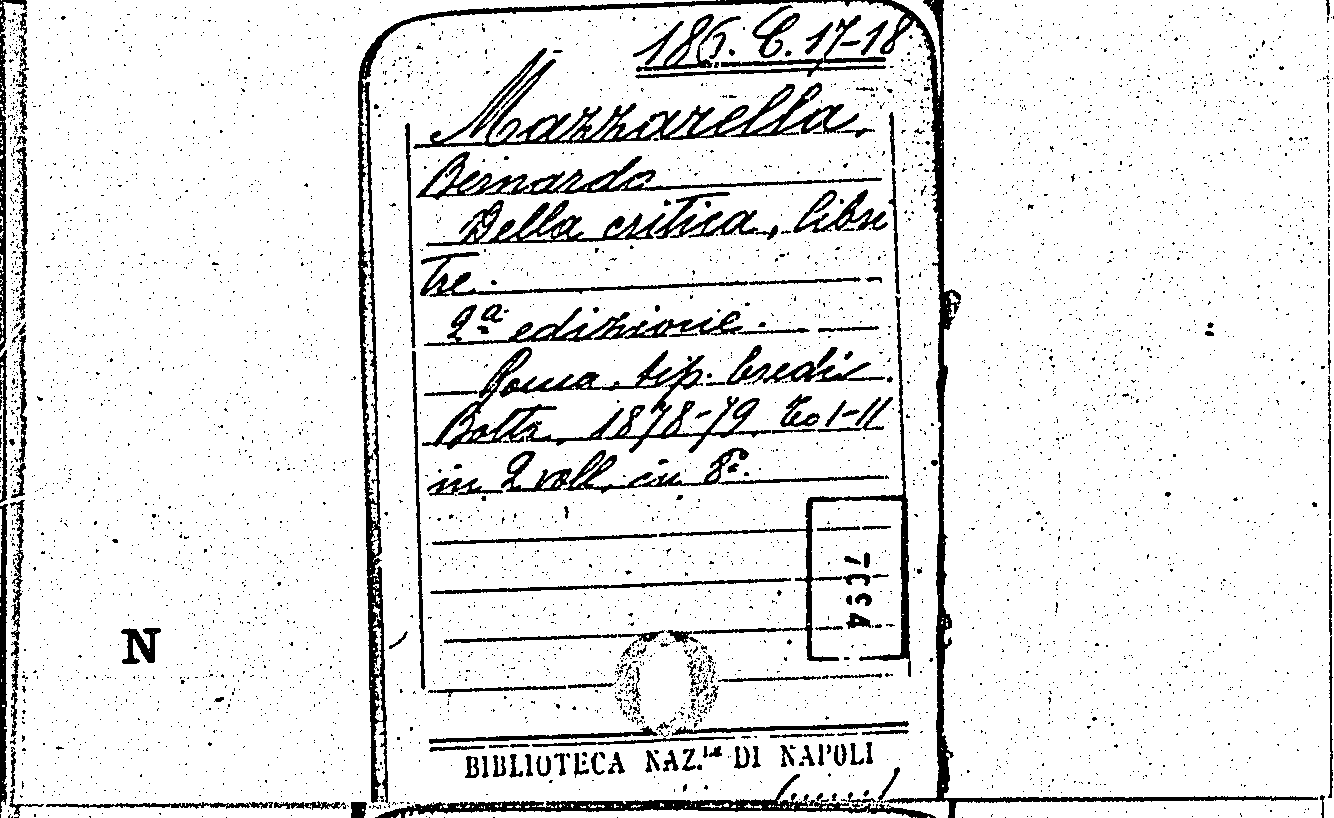 186. C. 17-18
Mazzarella,
Bernardo
Della critica, libri
tre.
2ª edizione.
Roma, tip. Eredi
Botta, 1878-79. To I-II
in 2 voll. in 8º.
N
BIBLIOTECA NAZ.le DI NAPOLI